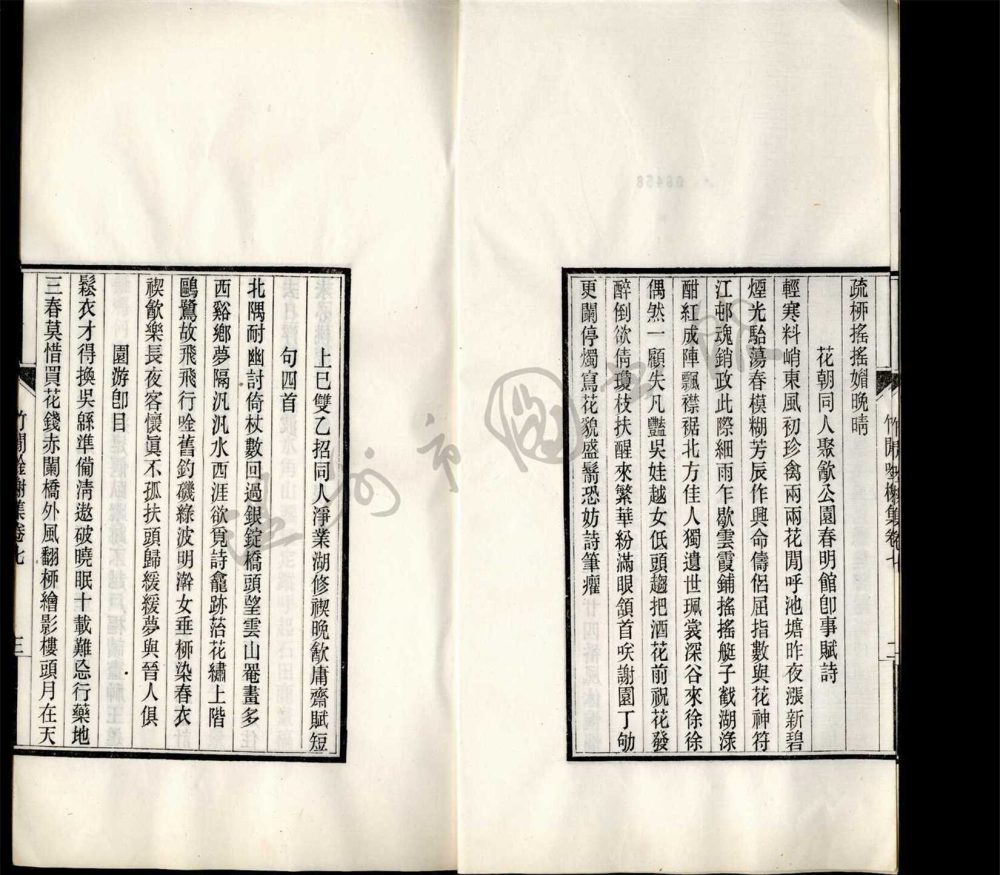 疏桺搖搖媚晚晴
花朝同人聚飲公園春明館卽事賦詩
輕寒料峭東風初珍禽兩兩花閒呼池塘昨夜漲新碧
煙光駘蕩春模糊芳辰作興命儔侶屈指數與花神符
江邨魂銷政此際細雨乍歇雲霞鋪搖搖艇子戳湖淥
酣紅成陣飄襟裾北方佳人獨遺世珮裳深谷來徐徐
偶然一顧失凡豔吳娃越女低頭趨把酒花前祝花發
醉倒欲倩瓊枝扶醒來繁華粉滿眼頷首咲謝園丁劬
更闌停燭寫花貌盛鬋恐妨詩筆癯
竹閒唫榭集卷七
二
上巳雙乙招同人淨業湖修禊晚飲庸齋賦短
句四首
北隅耐幽討倚杖數回過銀錠橋頭望雲山罨畫多
西谿鄉夢隔汎汎水西涯欲覓詩龕跡萿花繡上階
鷗鷺故飛飛行唫舊釣磯綠波明澣女垂桺染春衣
禊飲樂長夜客懷眞不孤扶頭歸緩緩夢與晉人俱
園游卽目
鬆衣才得換吳緜準備淸遨破曉眠十載難忘行藥地
三春莫惜買花錢赤闌橋外風翻桺繪影樓頭月在天
竹閒唫榭集卷七
三
溫州市圖書館